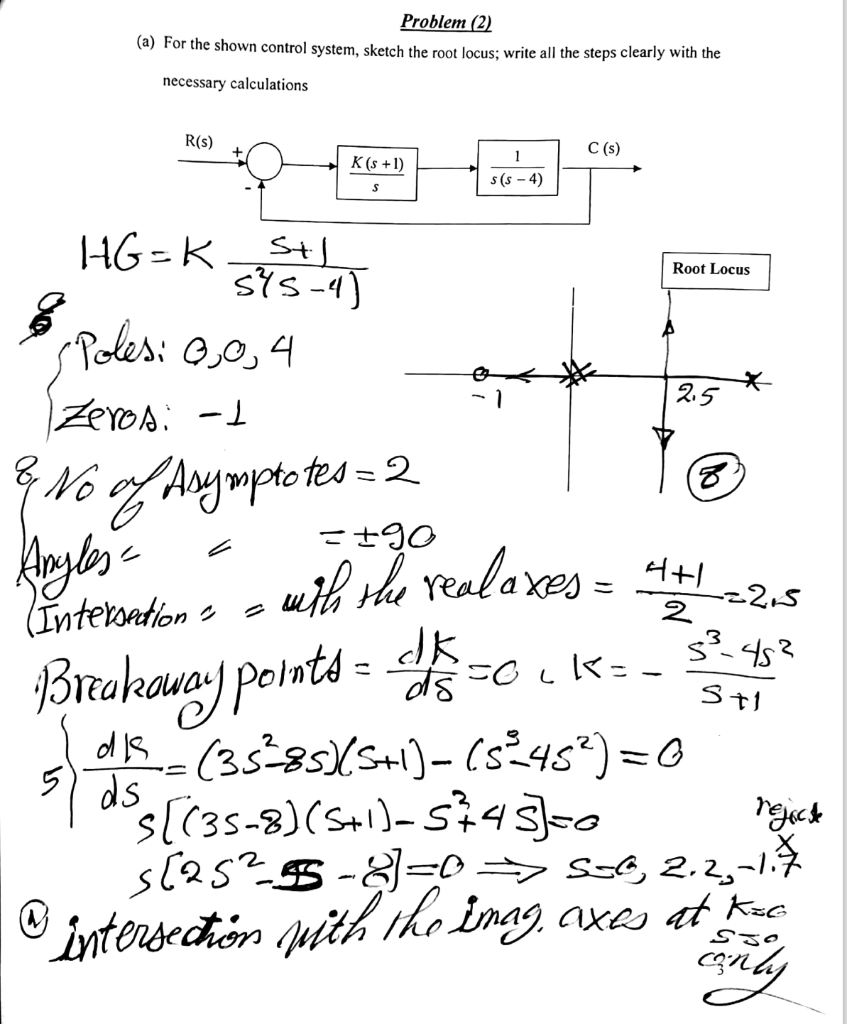 Problem (2)
(a) For the shown control system, sketch the root locus; write all the steps clearly with the
necessary calculations
R(s)
+
-
K (s + 1)
s
1
s (s - 4)
C (s)
HG = K S+1
S²(S-4)
Root Locus
Poles: 0,0,4
Zeros: -1
-1
2.5
8
8 No of Asymptotes = 2
Angles = ±90
Intersection with the real axes = 4+1
2
=2.5
Breakaway points = dK
ds
=0 K = - S³-4S²
S+1
5
dK
ds
= (3S²-8S)(S+1) - (S³-4S²) = 0
S[(3S-8)(S+1) - S²+4S]=0
reject
x
S[2S² - S - 8]=0 ⇒ S=0, 2.2, -1.7
intersection with the imag. axes at K=0
S=0
only